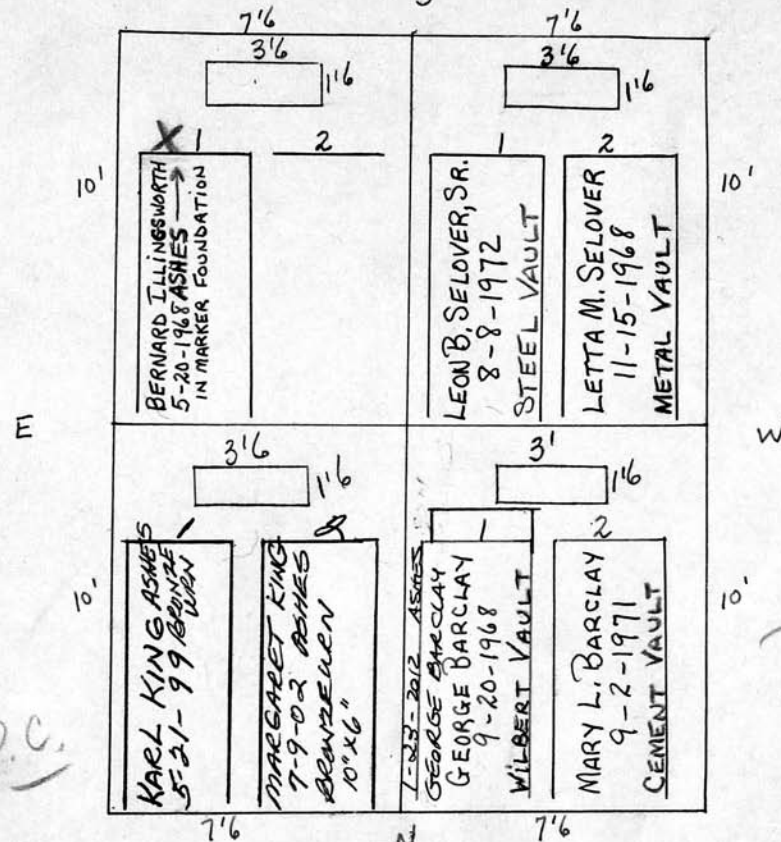 7'6
7'6
3'6
1'6
3'6
1'6
X
1
2
1
2
10'
10'
BERNARD ILLINGSWORTH
5-20-1968 ASHES →
IN MARKER FOUNDATION
LEON B. SELOVER, SR.
8-8-1972
STEEL VAULT
LETTA M. SELOVER
11-15-1968
METAL VAULT
E
W
3'6
1'6
3'
1'6
1
2
1
2
10'
10'
KARL KING ASHES
5-21-99 BRONZE
URN
MARGARET KING
7-9-02 ASHES
BRONZE URN
10"X6"
1-23-2012 ASHES
GEORGE BARCLAY
GEORGE BARCLAY
9-20-1968
WILBERT VAULT
MARY L. BARCLAY
9-2-1971
CEMENT VAULT
7'6
7'6
N